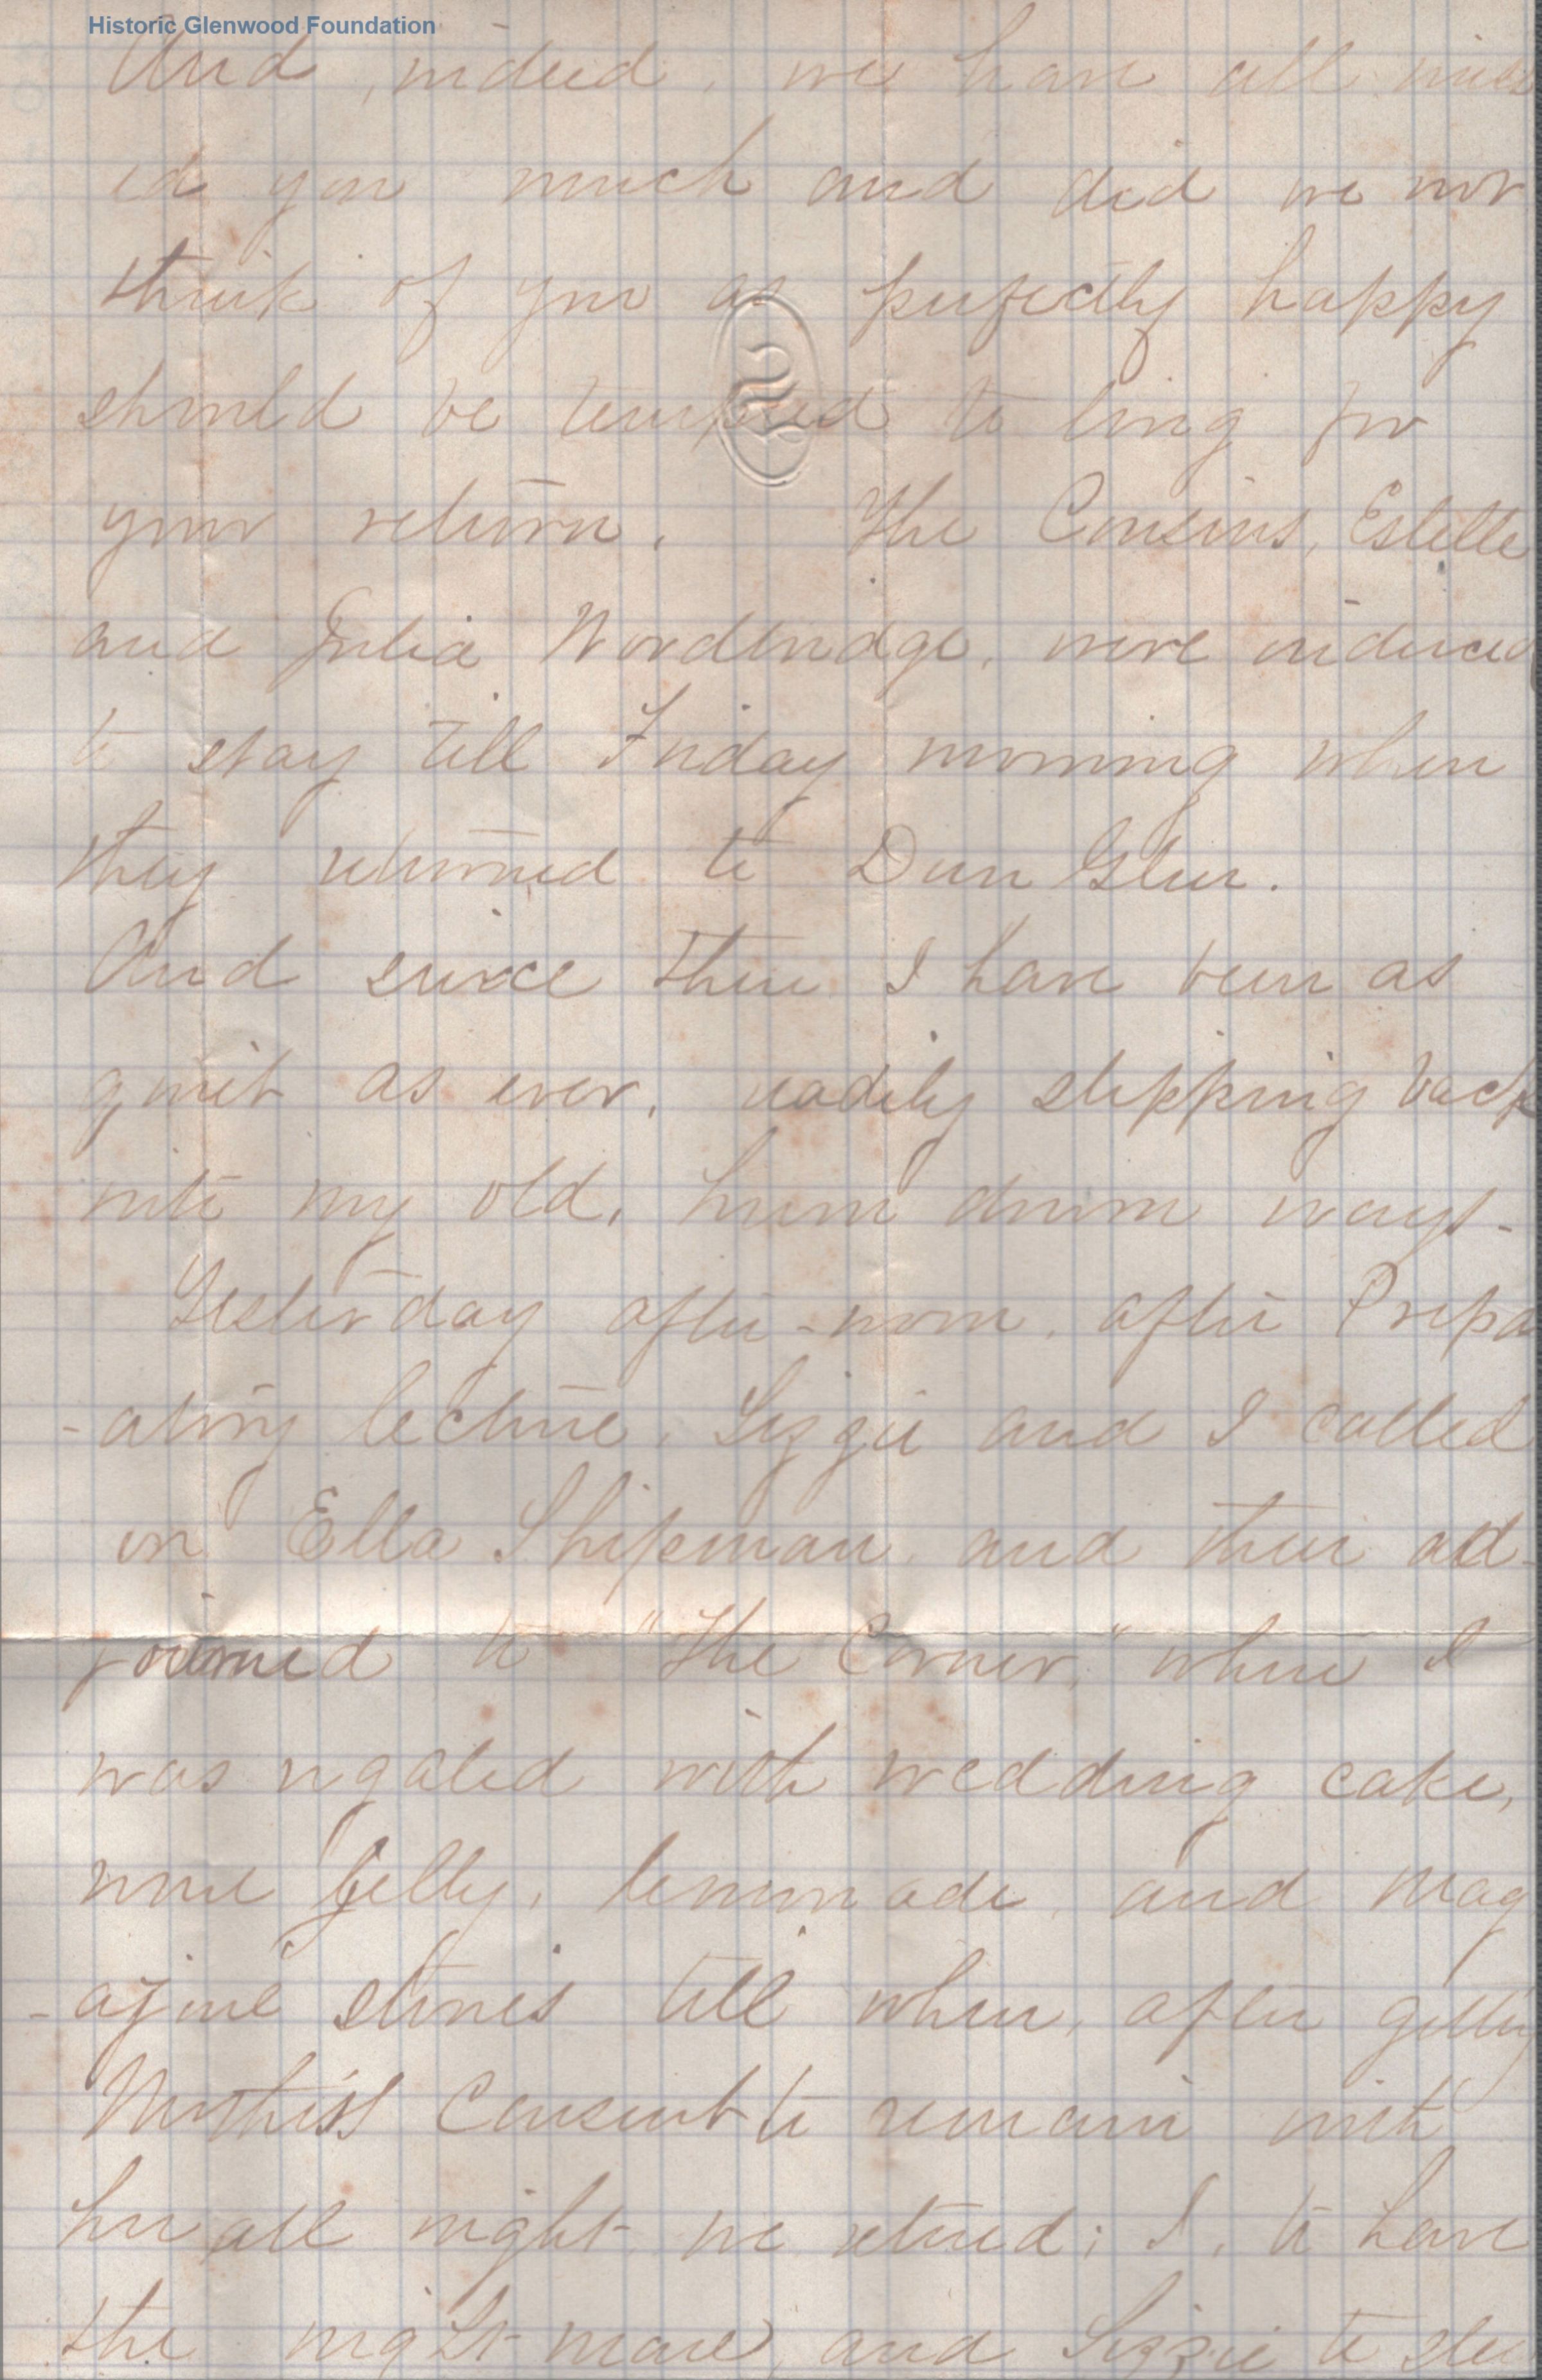 Historic Glenwood Foundation
And, indeed, we have all miss
ed you much and did we not
think of you as perfectly happy
should be tempted to long for
your return. The Cousins, Estelle
and Julia Wooldridge, were induced
to stay till Friday morning when
they returned to Dun Glen.
And since then I have been as
quiet as ever, readily slipping back
into my old, hum drum ways.
Yesterday after-noon, after Prepa
-atory lecture, Lizzie and I called
on Ella Shipman and then ad-
journed to "The Corner," where I
was regaled with wedding cake,
wine jelly, lemonade, and mag
-azine stories till when, after getting
Mother's consent to remain with
her all night we retired; I, to have
the night mare, and Lizzie to